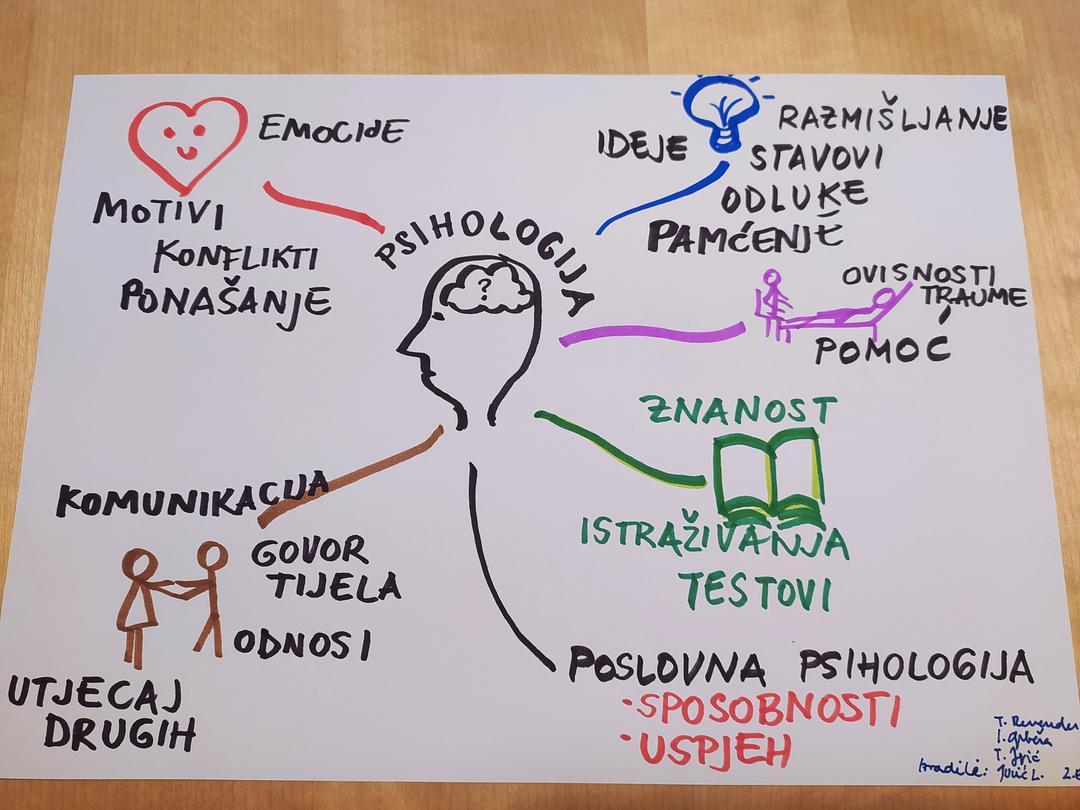 PSIHOLOGIJA
?
EMOCIJE
MOTIVI
KONFLIKTI
PONAŠANJE
IDEJE
RAZMIŠLJANJE
STAVOVI
ODLUKE
PAMĆENJE
OVISNOSTI
TRAUME
POMOĆ
ZNANOST
ISTRAŽIVANJA
TESTOVI
KOMUNIKACIJA
GOVOR
TIJELA
ODNOSI
UTJECAJ
DRUGIH
POSLOVNA PSIHOLOGIJA
•SPOSOBNOSTI
•USPJEH
T.
I.
T.
Izradile: L.